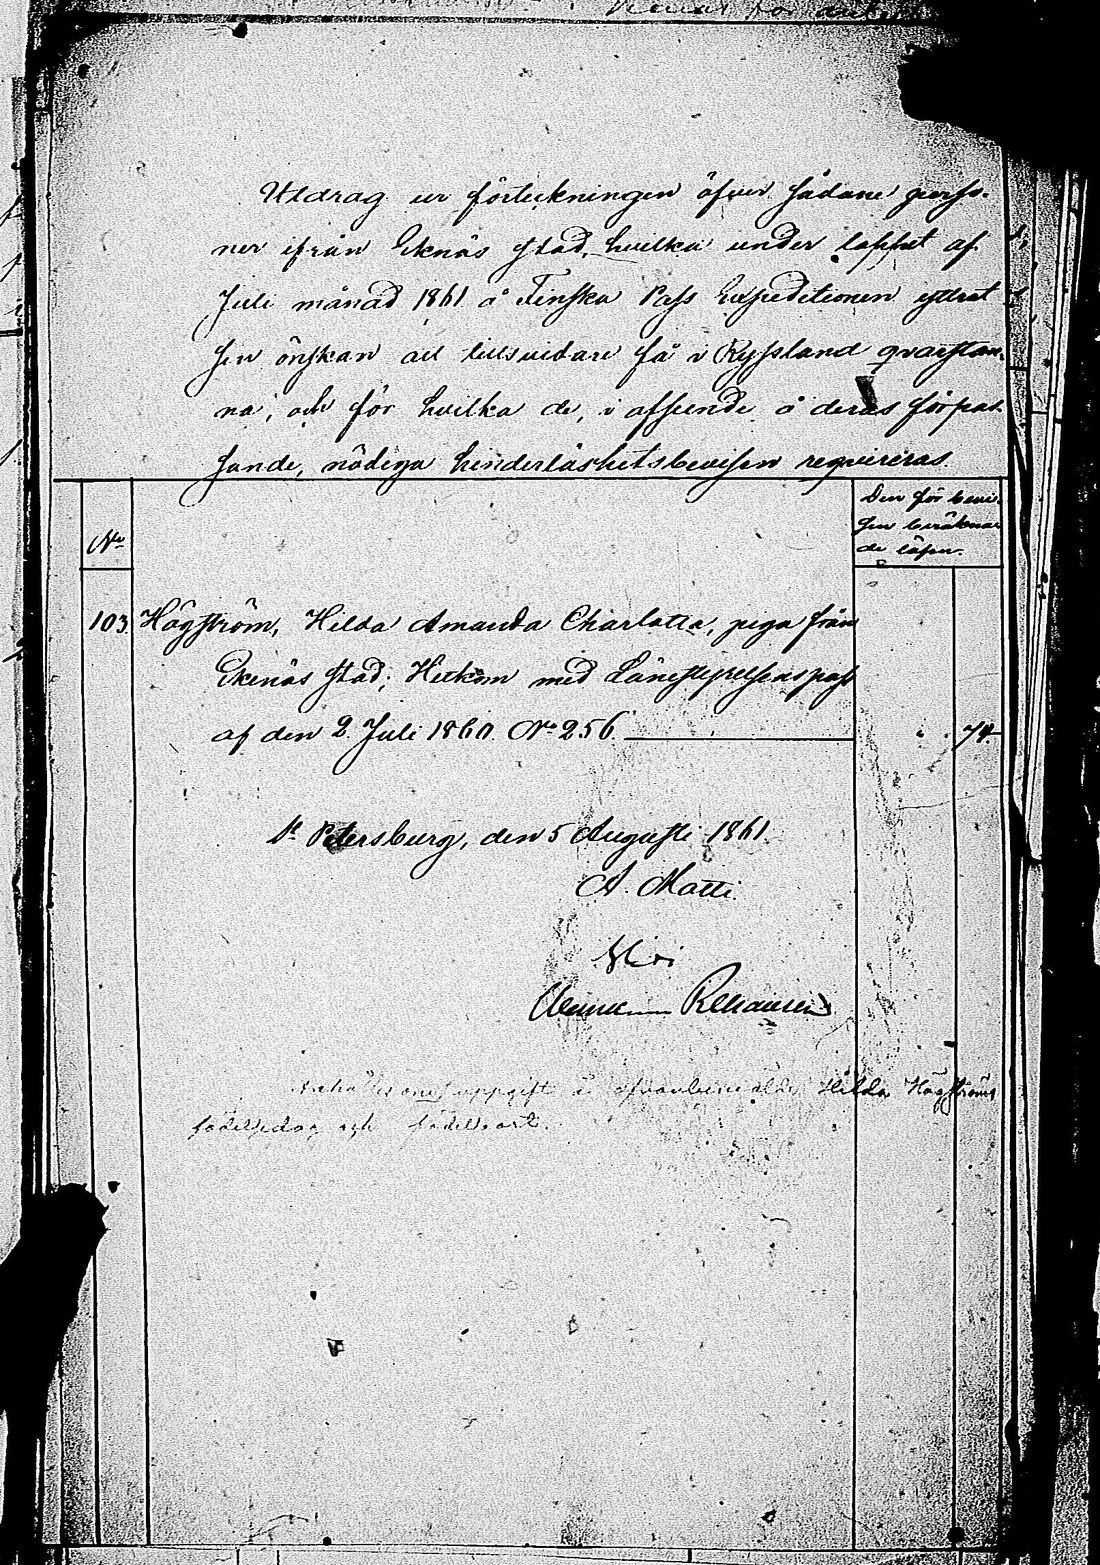 Utdrag ur förteckningen öfver sådane perso-
ner ifrån Eknäs stad, hvilka under loppet af
Juli månad 1861 å Finska Pass Expeditionen yttrat
sin önskan att tillsvidare få i Ryssland qvarstan-
na, och för hvilka de, i afseende å deras förpas-
sande, nödiga hinderlöshetsbevisen requireras.
Den för bevi-
sen beräkna-
de lösen.
No
103. Högström, Hilda Amanda Charlotta, piga från
Ekenäs stad; Hitkom med Länestyrelsens pass
af den 2 Juli 1860. No 256. 74.
St Petersburg, den 5 Augusti 1861.
A. Matti.
uppgift å Hilda Högströms
födelsedag och födelseort.